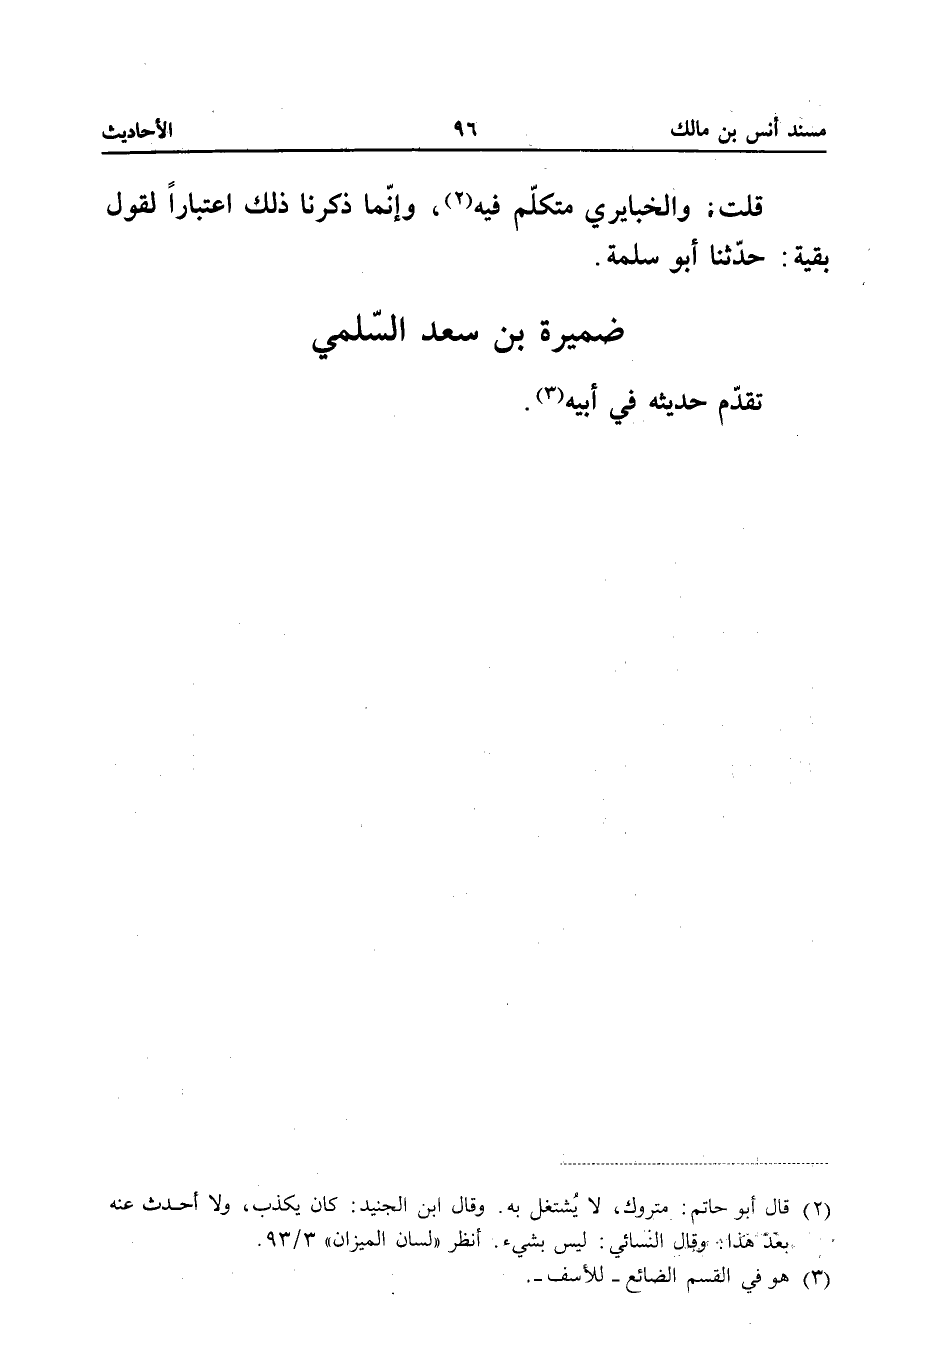 مسند أنس بن مالك ٩٦ الأحاديث
قلت: والخبايري متكلّم فيه(٢)، وإنّما ذكرنا ذلك اعتباراً لقول
بقية: حدّثنا أبو سلمة.
ضميرة بن سعد السّلمي
تقدّم حديثه في أبيه(٣).
(٢) قال أبو حاتم: متروك، لا يُشتغل به. وقال ابن الجنيد: كان يكذب، ولا أحدث عنه
بعدَ هَذا: وقال النسائي: ليس بشيء. أنظر «لسان الميزان» ٩٣/٣.
(٣) هو في القسم الضائع ـ للأسف ـ.